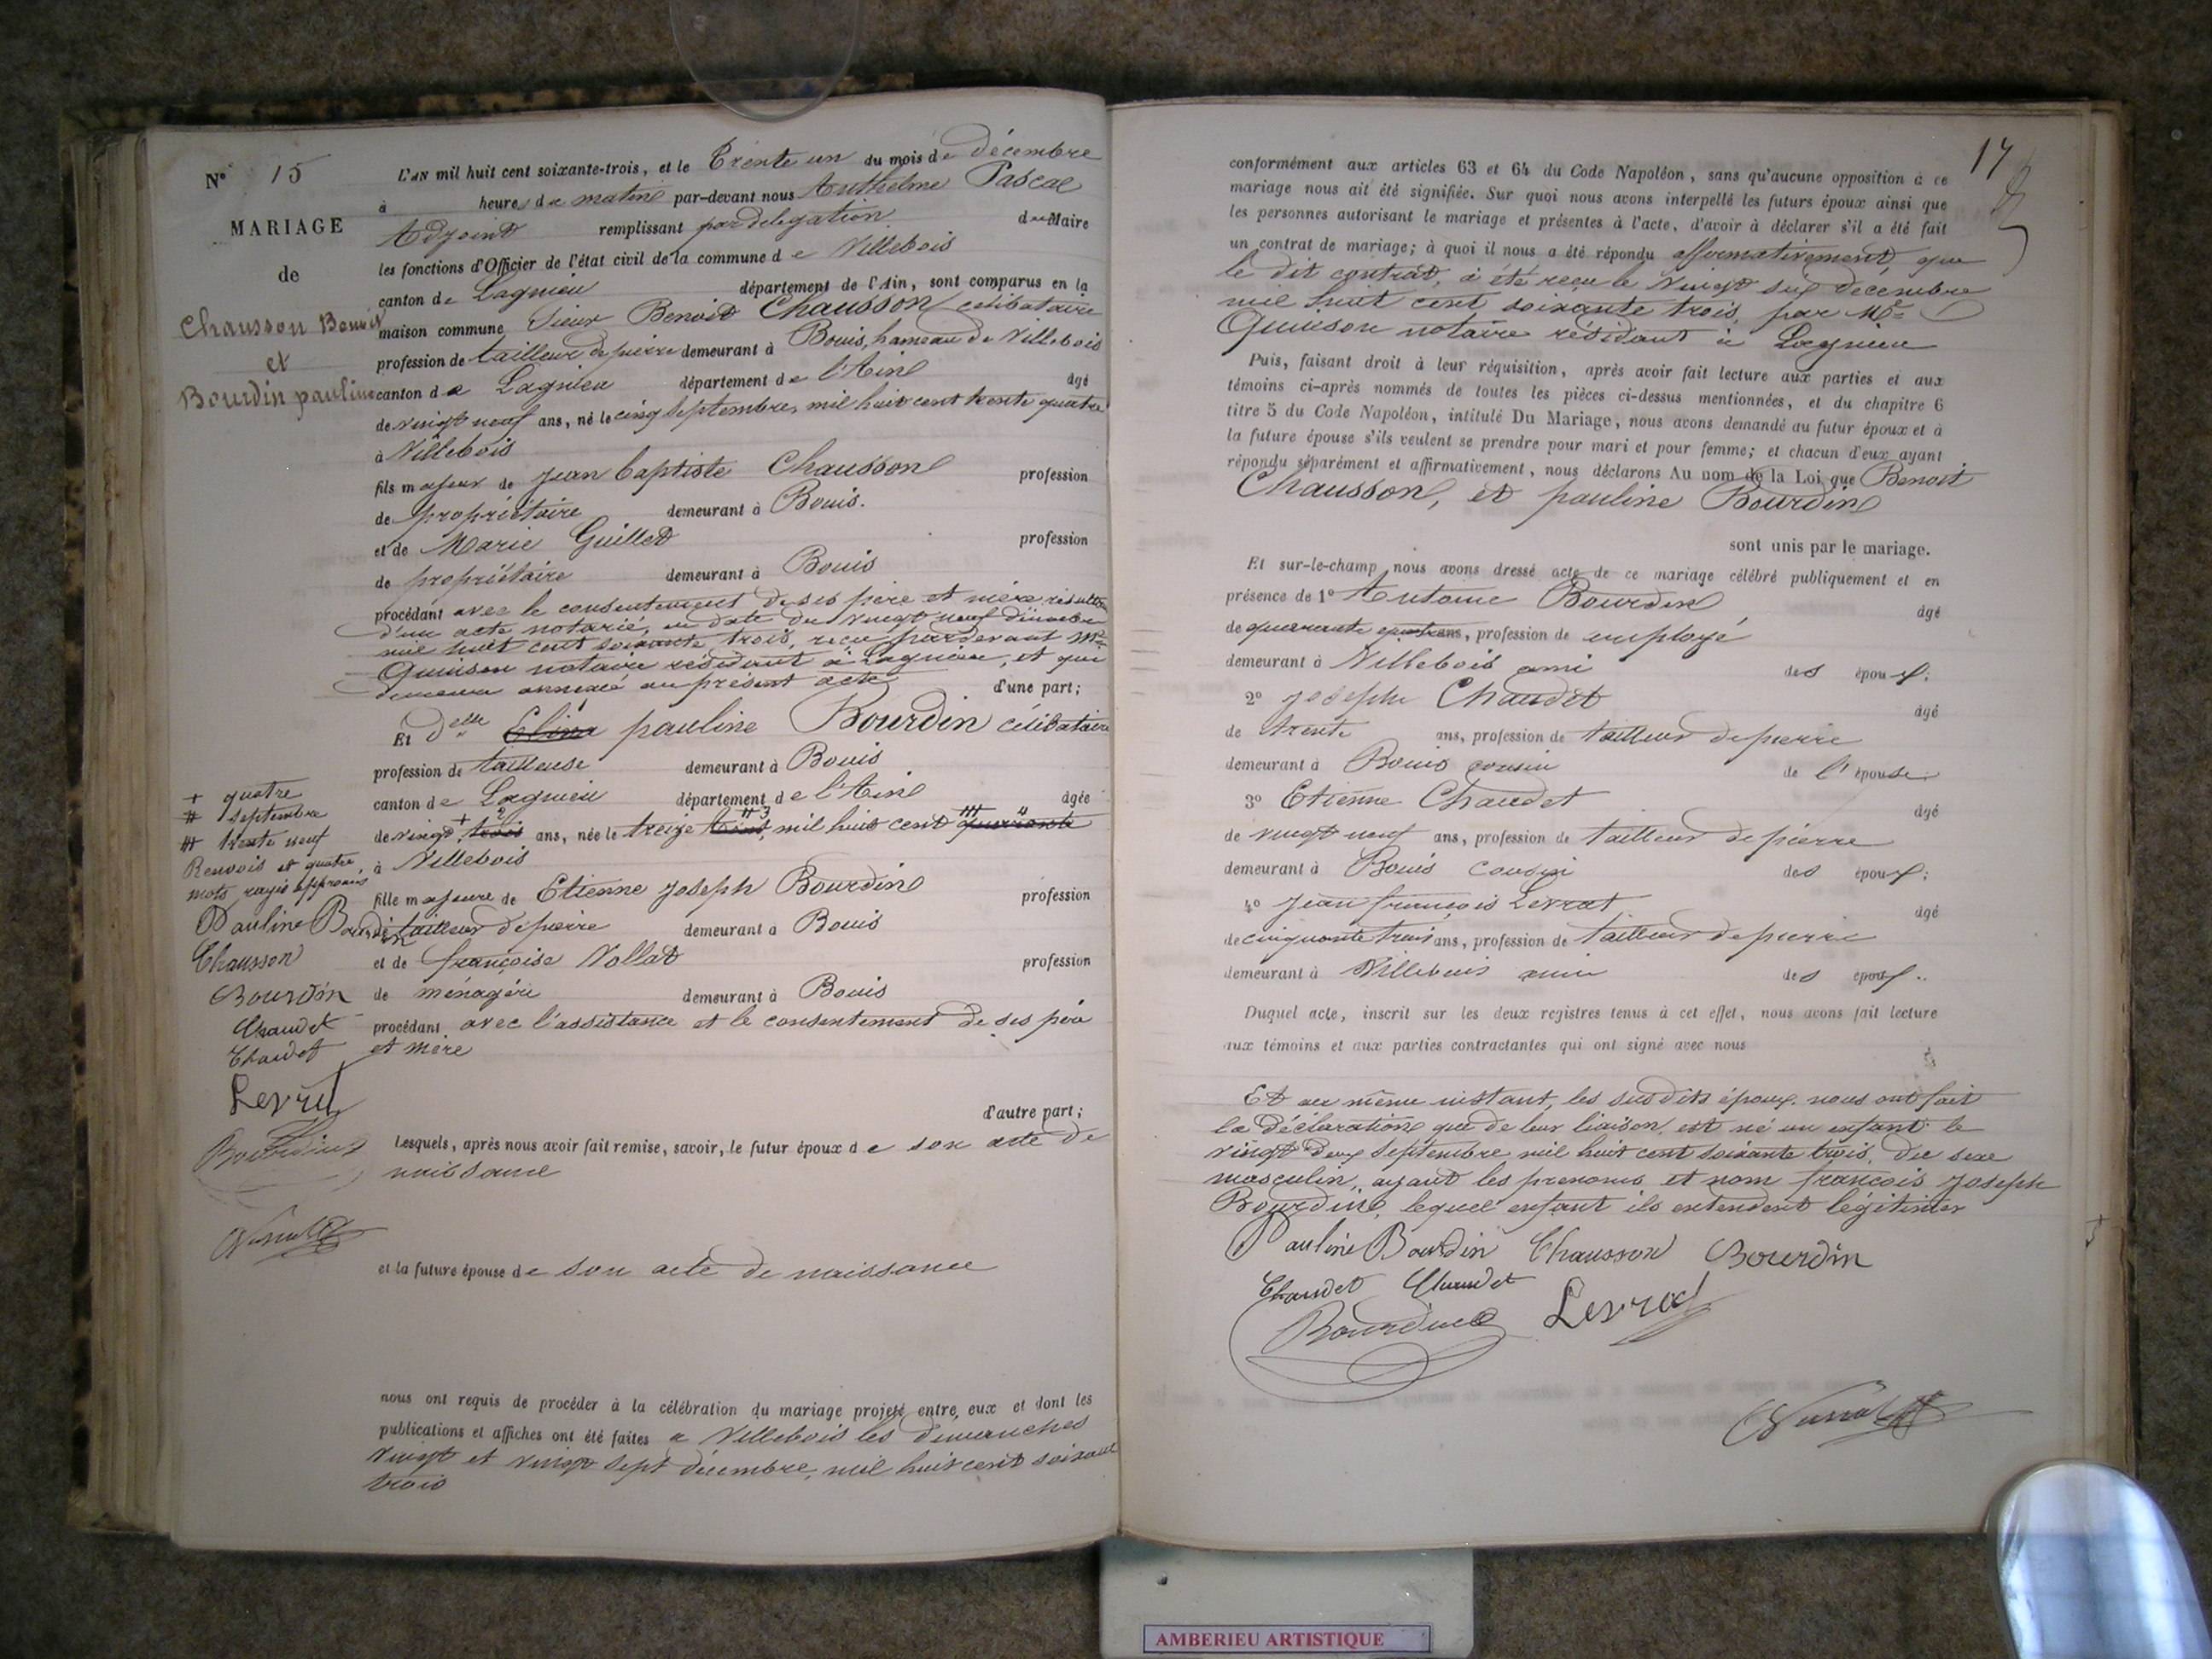 N° 15
MARIAGE
de
Chausson Benoit
et
Bourdin pauline
L'AN mil huit cent soixante-trois, et le Trente un du mois de décembre
à heures de matin par-devant nous Anthelme Pascal
Adjoint remplissant par délégation du Maire
les fonctions d'Officier de l'état civil de la commune de Villebois
canton de Lagnieu département de l'Ain, sont comparus en la
maison commune Sieur Benoit Chausson célibataire
profession de tailleur de pierre demeurant à Bouis, hameau de Villebois
canton de Lagnieu département de l'Ain âgé
de vingt neuf ans, né le cinq septembre, mil huit cent trente quatre
à Villebois
fils majeur de Jean baptiste Chausson profession
de propriétaire demeurant à Bouis.
et de Marie Guillet profession
de propriétaire demeurant à Bouis
procédant avec le consentement de ses père et mère résultant
d'un acte notarié, en date du vingt neuf décembre
mil huit cent soixante trois, reçu pardevant Me
Quinson notaire résidant à Lagnieu, et qui
demeure annexé au présent acte d'une part;
Et Delle pauline Bourdin célibataire
profession de tailleuse demeurant à Bouis
canton de Lagnieu département de l'Ain âgée
de vingt trois ans, née le treize mil huit cent quarante
à Villebois
fille majeure de Etienne Joseph Bourdin profession
de tailleur de pierre demeurant à Bouis
et de françoise Vollat profession
de ménagère demeurant à Bouis
procédant avec l'assistance et le consentement de ses père
et mère
d'autre part;
Lesquels, après nous avoir fait remise, savoir, le futur époux de son acte de
naissance
et la future épouse de son acte de naissance
nous ont requis de procéder à la célébration du mariage projeté entre eux et dont les
publications et affiches ont été faites à Villebois les dimanches
vingt et vingt sept décembre, mil huit cent soixante
trois
+ quatre
# septembre
trente neuf
Renvois et quatre
mots rayés approuvés
Pauline Bourdin
Chausson
Bourdin
Chaudet
Chaudet
Levrat
17
conformément aux articles 63 et 64 du Code Napoléon, sans qu'aucune opposition à ce
mariage nous ait été signifiée. Sur quoi nous avons interpellé les futurs époux ainsi que
les personnes autorisant le mariage et présentes à l'acte, d'avoir à déclarer s'il a été fait
un contrat de mariage; à quoi il nous a été répondu affirmativement, que
le dit contrat, à été reçu le vingt six décembre
mil huit cent soixante trois, par Me
Quinson notaire résidant à Lagnieu
Puis, faisant droit à leur réquisition, après avoir fait lecture aux parties et aux
témoins ci-après nommés de toutes les pièces ci-dessus mentionnées, et du chapitre 6
titre 5 du Code Napoléon, intitulé Du Mariage, nous avons demandé au futur époux et à
la future épouse s'ils veulent se prendre pour mari et pour femme; et chacun d'eux ayant
répondu séparément et affirmativement, nous déclarons Au nom de la Loi que Benoit
Chausson, et pauline Bourdin
sont unis par le mariage.
Et sur-le-champ nous avons dressé acte de ce mariage célébré publiquement et en
présence de 1° Antoine Bourdin âgé
de quarante ans, profession de employé
demeurant à Villebois ami des époux;
2° Joseph Chaudet âgé
de trente ans, profession de tailleur de pierre
demeurant à Bouis cousin de l'épouse
3° Etienne Chaudet âgé
de vingt neuf ans, profession de tailleur de pierre
demeurant à Bouis cousin des époux;
4° Jean françois Levrat âgé
de cinquante trois ans, profession de tailleur de pierre
demeurant à Villebois ami des époux.
Duquel acte, inscrit sur les deux registres tenus à cet effet, nous avons fait lecture
aux témoins et aux parties contractantes qui ont signé avec nous
Et au même instant, les susdits époux nous ont fait
la déclaration que de leur liaison, est né un enfant le
vingt deux septembre mil huit cent soixante trois, du sexe
masculin, ayant les prenoms et nom françois Joseph
Bourdin, lequel enfant ils entendent légitimer
Pauline Bourdin Chausson Bourdin
Chaudet Chaudet
Bourdin Levrat
AMBERIEU ARTISTIQUE